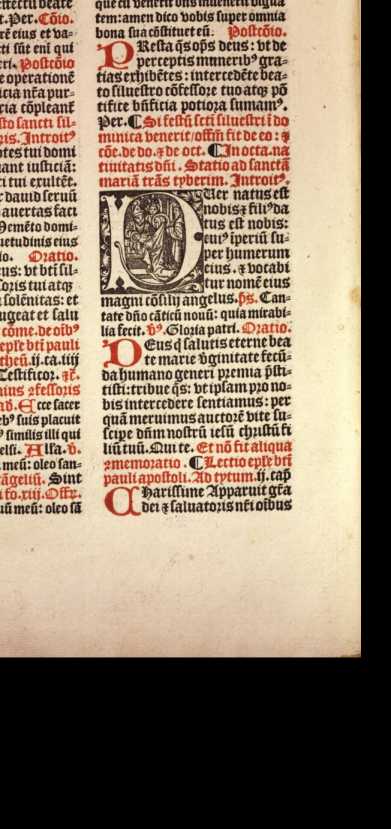 effectū beate
t. Per. Cōio.
rē eius et va-
cti sūt eni qui
eri. Postcōio
e operationē
icia nr̄a pur-
ria cōpleant
sto sancti sil-
ris. Introitꝰ
otes tui domi
uant iusticiā:
cti tui exultēt.
r dauid seruū
auertas faci
Memēto domi-
uetudinis eius
io. Oratio.
eus: vt bti sil-
soris tui atqꝫ
solēnitas: et
ugeat et salu
cōme. de oībꝰ
epłe bti pauli
theū. ij. ca. iiij
Testificor. ꝶ.
nius ꝯfessoris
ad. Ecce sacer
ebꝰ suis placuit
ꝰ similis illi qui
elsi. Alła. ℣.
meū: oleo san-
āgeliū. Sint
i fo. xiij. Offꝝ.
uū meū: oleo sā
que cū venerit dn̄s inuenerit vigilā
tem: amen dico vobis super omnia
bona sua cōstituet eū. Postcōio.
PResta q̄sos deus: vt de
perceptis muneribꝰ gra-
tias exhibētes: intercedēte bea-
to siluestro cōfessore tuo atqꝫ pō
tifice bn̄ficia potiora sumamꝰ.
Per. ¶ Si festū scti siluestri ī do
minica venerit/offm̄ fit de eo: ⁊
cōe. de do. ⁊ de oct. ¶ In octa. na
tiuitatis dn̄i. Statio ad sanctā
mariā trās tyberim. Introitꝰ.
PUer natus est
nobis ⁊ filiꝰ da
tus est nobis:
cuiꝰ īperiū su-
per humerum
eius. ⁊ vocabi
tur nomē eius
magni cōsilij angelus. p̄s. Can-
tate dn̄o cāticū nouū: quia mirabi-
lia fecit. ℣ꝰ. Gloria patri. Oratio.
DEus q̄ salutis eterne bea
te marie v̄ginitate fecū-
da humano generi premia p̄sti-
tisti: tribue q̄s: vt ipsam pro no-
bis intercedere sentiamus: per
quā meruimus auctorē vite su-
scipe dn̄m nostrū iesū christū fi
liū tuū. Qui te. Et nō fit aliqua
ꝯmemoratio. ¶ Lectio epłe bti
pauli apostoli. Ad tytum. ij. cap̄
CHarissime Apparuit gr̄a
dei ⁊ saluatoris nr̄i oībus